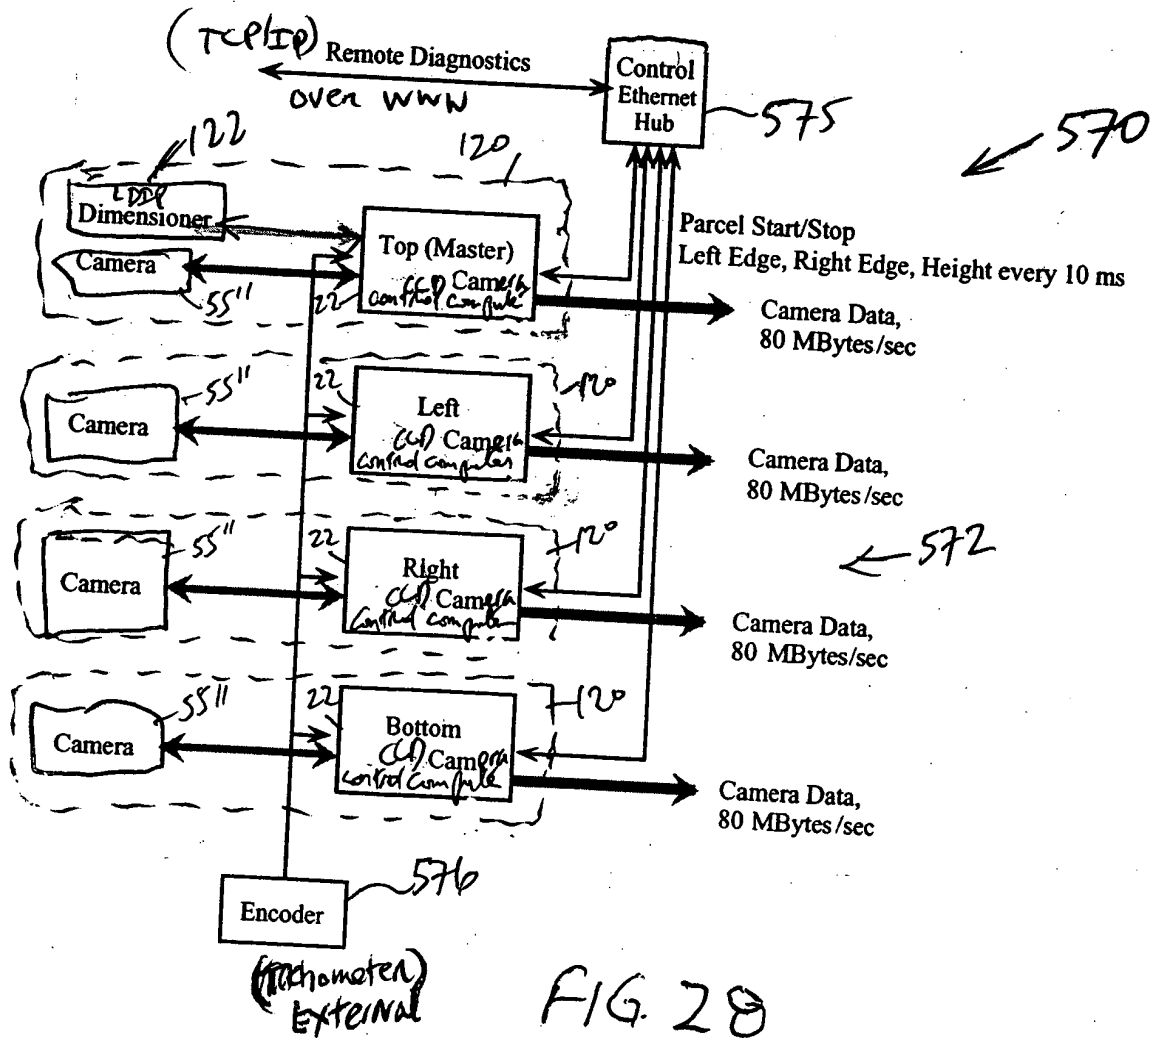 (TCP/IP)
Remote Diagnostics
over WWW
Control
Ethernet
Hub
575
570
122
120
LDIP
Dimensioner
Camera
55"
22
Top (Master)
CCD Camera
control compute
Parcel Start/Stop
Left Edge, Right Edge, Height every 10 ms
Camera Data,
80 MBytes/sec
55"
22
120
Camera
Left
CCD Camera
control computer
Camera Data,
80 MBytes/sec
572
55"
22
120
Camera
Right
CCD Camera
control computer
Camera Data,
80 MBytes/sec
55"
22
120
Camera
Bottom
CCD Camera
control compute
Camera Data,
80 MBytes/sec
576
Encoder
(tachometer)
External
FIG. 28